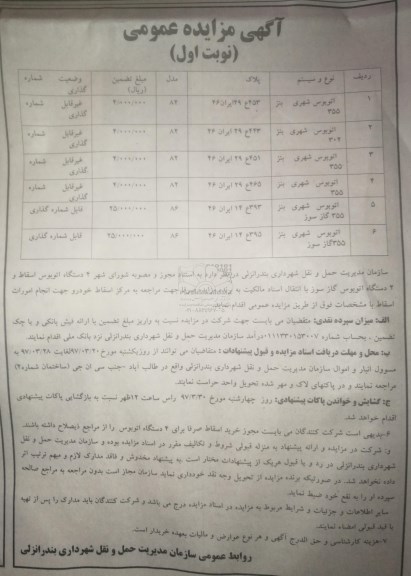 آگهی مزایده عمومی
(نوبت اول)
ردیف نوع و سیستم پلاک مدل مبلغ تضمین (ریال) وضعیت شماره گذاری
۱ اتوبوس شهری بنز ۳۵۵ ۲۵۳ع ۴۹ایران۲۶ ۸۲ ۴/۰۰۰/۰۰۰ غیرقابل شماره گذاری
۲ اتوبوس شهری بنز ۳۰۲ ۲۴۳ع ۲۹ ایران ۲۶ ۸۲ ۴/۰۰۰/۰۰۰ غیرقابل شماره گذاری
۳ اتوبوس شهری بنز ۳۵۵ ۲۵۱ع ۲۹ ایران ۲۶ ۸۲ ۴/۰۰۰/۰۰۰ غیرقابل شماره گذاری
۴ اتوبوس شهری بنز ۳۵۵ ۲۶۵ع ۲۹ ایران ۲۶ ۸۲ ۴/۰۰۰/۰۰۰ غیرقابل شماره گذاری
۵ اتوبوس شهری بنز ۳۵۵ گاز سوز ۳۹۳ع ۱۴ ایران ۲۶ ۸۶ ۲۵/۰۰۰/۰۰۰ قابل شماره گذاری
۶ اتوبوس شهری بنز ۳۵۵گاز سوز ۳۹۵ع ۱۴ ایران ۲۶ ۸۶ ۲۵/۰۰۰/۰۰۰ قابل شماره گذاری
سازمان مدیریت حمل و نقل شهرداری بندرانزلی درنظر دارد به استناد مجوز و مصوبه شورای شهر ۴ دستگاه اتوبوس اسقاط و
۲ دستگاه اتوبوس گاز سوز با انتقال اسناد مالکیت به برنده مزایده جهت مراجعه به مرکز اسقاط خودرو جهت انجام ضررات
اسقاط با مشخصات فوق از طریق مزایده عمومی اقدام نماید.
الف: میزان سپرده نقدی: متقاضیان می بایست جهت شرکت در مزایده نسبت به واریز مبلغ تضمین با ارائه فیش بانکی و یا چک
تضمین ، بحساب شماره درآمد سازمان مدیریت حمل و نقل شهرداری بندرانزلی نزد بانک ملی اقدام نمایند.
ب: محل و مهلت دریافت اسناد مزایده و قبول پیشنهادات : متقاضیان می توانند از روزیکشنبه مورخ ۹۷/۰۳/۲۰ لغایت ۹۷/۰۳/۲۸ به
مسوول انبار و اموال سازمان مدیریت حمل و نقل شهرداری بندرانزلی واقع در طالب آباد -جنب سی ان جی (ساختمان شماره۲)
مراجعه نمایند و در پاکتهای لاک و مهر شده تحویل واحد حراست نمایند.
ج: گشایش و خواندن پاکات پیشنهادی: روز چهارشنبه مورخ ۹۷/۳/۳۰ راس ساعت ۱۲ظهر نسبت به بازگشایی پاکات پیشنهادی
اقدام خواهد شد.
بدیهی است شرکت کنندگان می بایست مجوز خرید اسقاط صرفا برای ۴ دستگاه اتوبوس را از مراجع ذیصلاح داشته باشند.
و: شرکت در مزایده و ارائه پیشنهاد به منزله قبولی شروط و تکالیف مقرر در اسناد مزایده بوده و سازمان مدیریت حمل و نقل
شهرداری بندرانزلی در رد و یا قبول هریک از پیشنهادات مختار است .به پیشنهاد مخدوش و فاقد مدارک لازم و مبهم ترتیب اثر
داده نخواهد شد. در صورتیکه برنده مزایده از تحویل وجه نقد خودداری نماید سازمان مجاز است بدون مراجعه به مراجع صالحه
سپرده او را به نفع خود ضبط نماید.
سایر اطلاعات و جزئیات و شرایط مربوط به مزایده در اسناد مزایده درج می باشد و شرکت کنندگان باید مدارک را پس از تهیه
با قید قبولی امضاء نمایند.
۷-هزینه کارشناسی و حق الدرج آگهی و هر نوع عوارض و مالیات بعهده خریدار است.
روابط عمومی سازمان مدیریت حمل و نقل شهرداری بندرانزلی